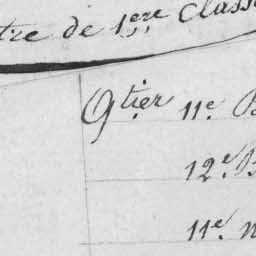 tre de 1ere Class
Qtier 11e B
12e B
11e n